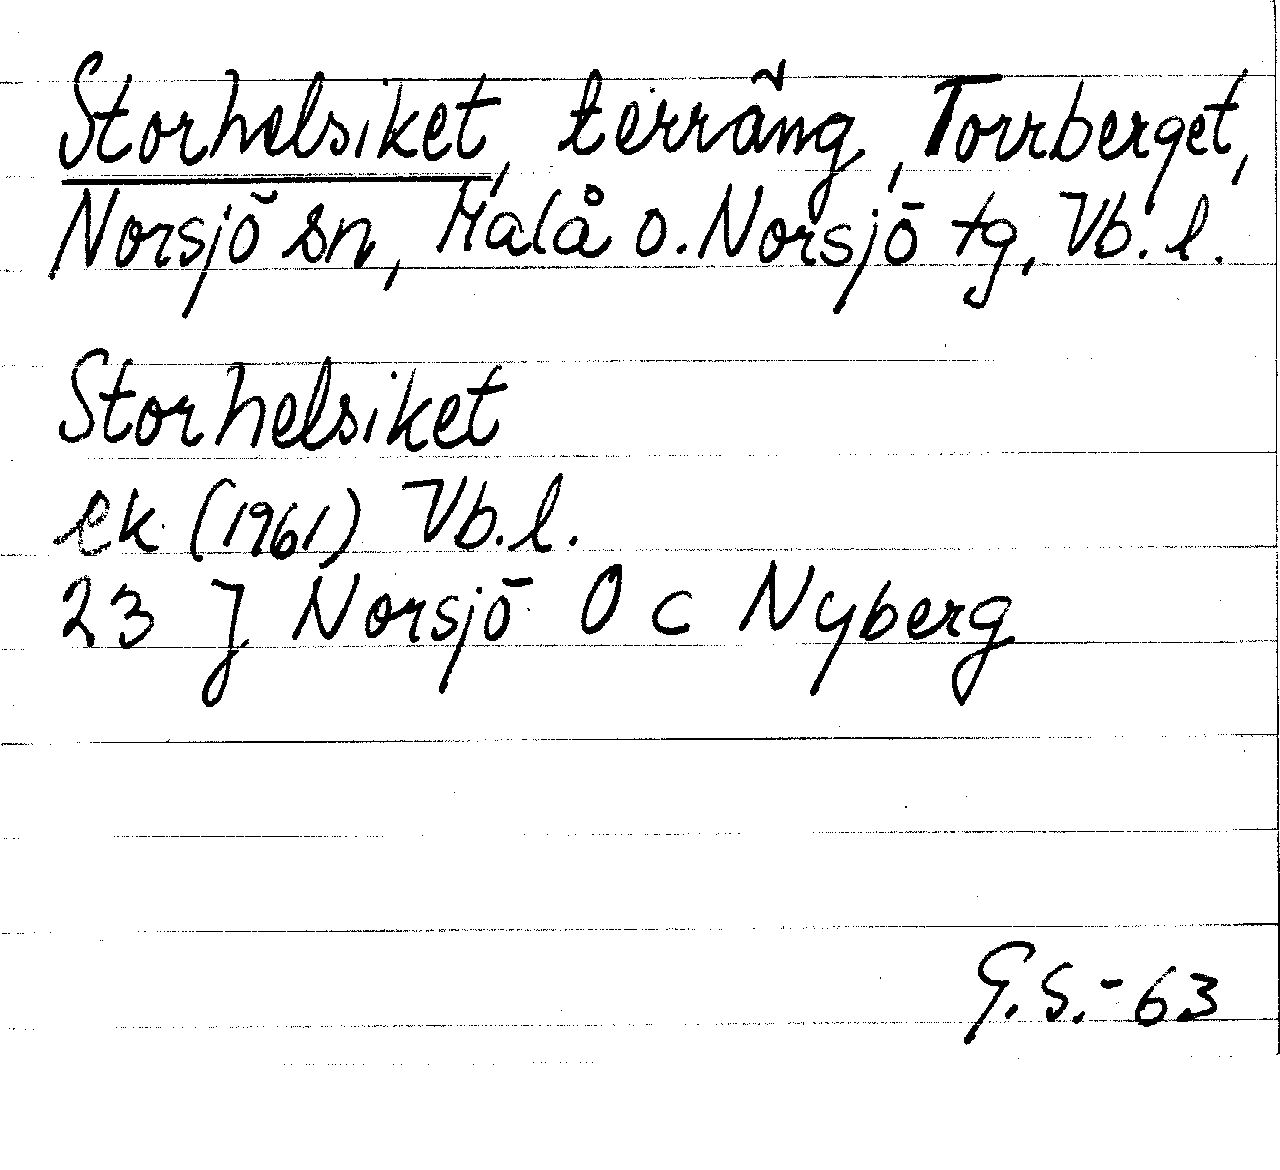 Storhelsiket, terräng, Torrberget,
Norsjö sn, Malå o. Norsjö tg, Vb. l.
Storhelsiket
ek (1961) Vb. l.
23 J Norsjö 0 c Nyberg
G.S.-63